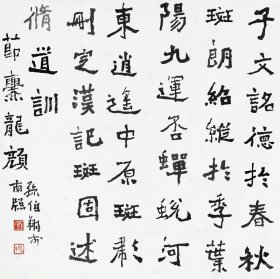 子文銘德於春秋
斑朗紹縱於季葉
陽九運否蟬蛻河
東逍遙中原斑彪
刪定漢記斑固述
脩道訓
節爨龍顏
孫伯翔